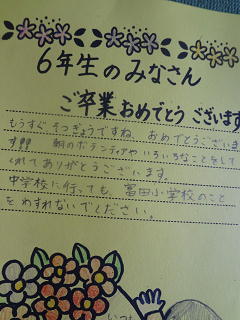 6年生のみなさん
ご卒業おめでとうございます
もうすぐそつぎょうですね。おめでとうございま
す!!! 朝のボランティアやいろいろなことをして
くれてありがとうございます。
中学校に行っても、富田小学校のこと
をわすれないでください。